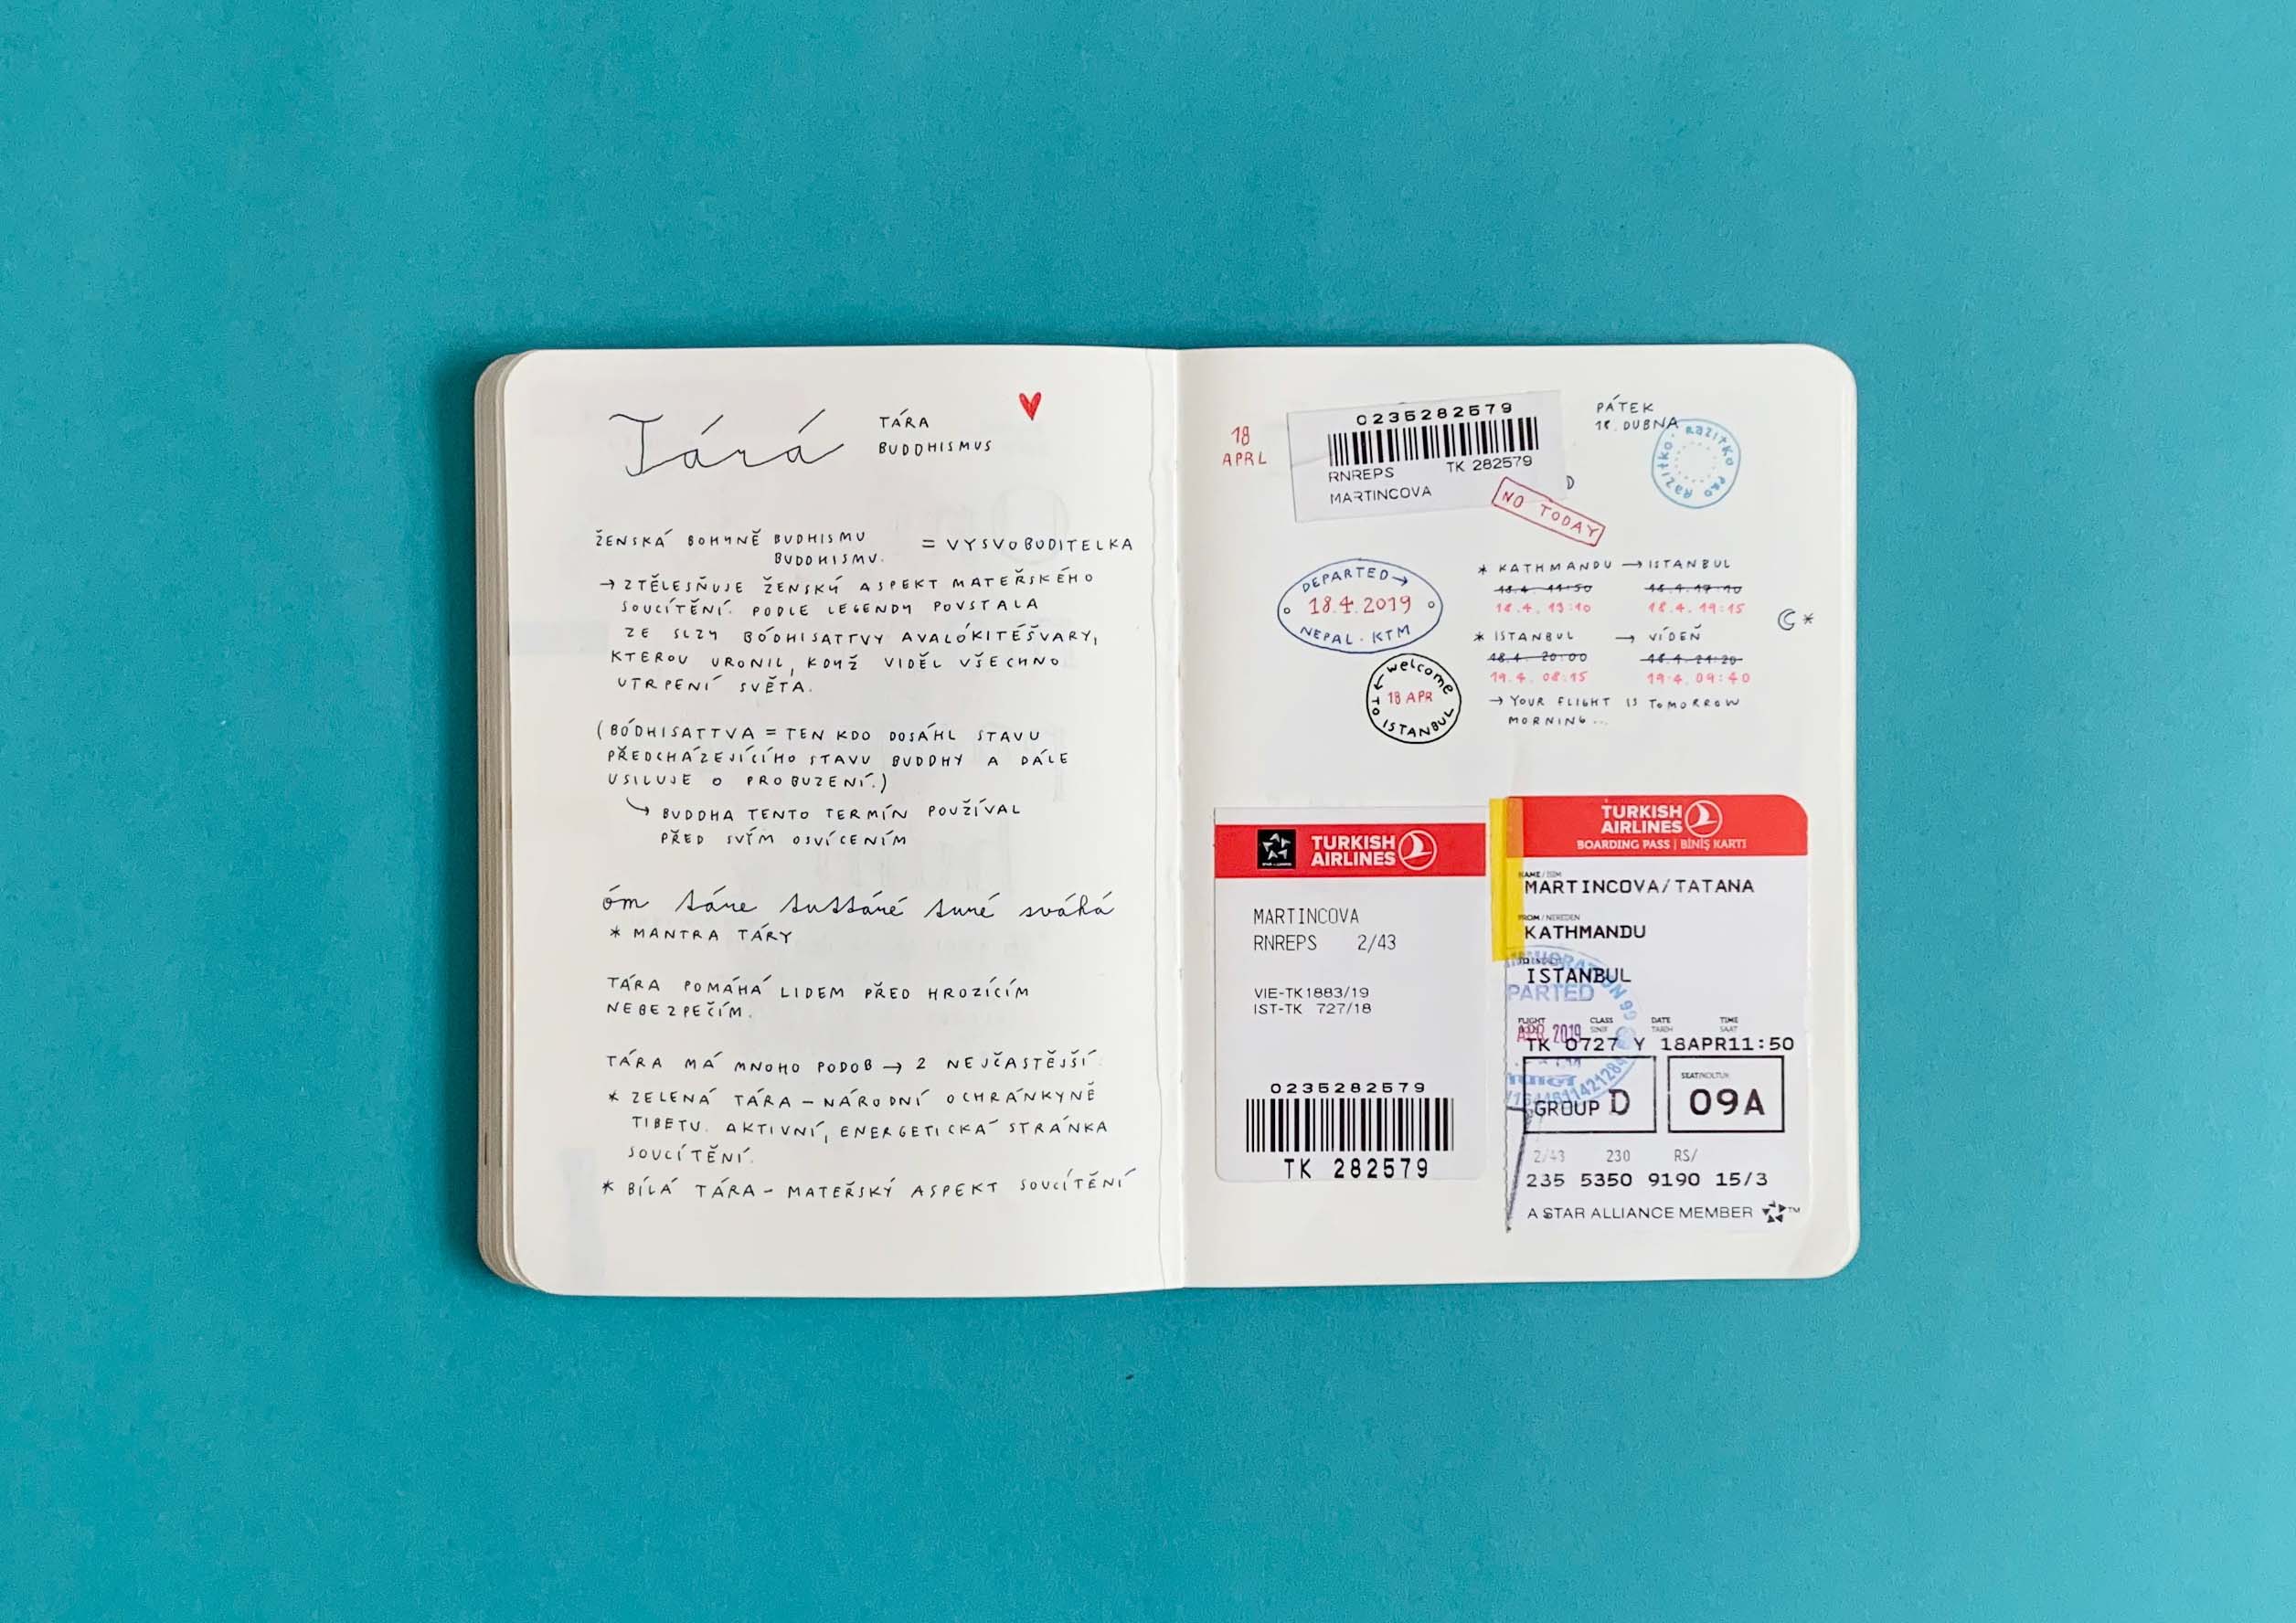 Tárá
TÁRA
BUDDHISMUS
ŽENSKÁ BOHYNĚ BUDHISMU = VYSVOBODITELKA
BUDDHISMU.
→ ZTĚLESŇUJE ŽENSKÝ ASPEKT MATEŘSKÉHO
SOUCÍTĚNÍ. PODLE LEGENDY POVSTALA
ZE SLZY BÓDHISATTVY AVALÓKITÉŠVARY,
KTEROU URONIL, KDYŽ VIDĚL VŠECHNO
UTRPENÍ SVĚTA.
(BÓDHISATTVA = TEN KDO DOSÁHL STAVU
PŘEDCHÁZEJÍCÍHO STAVU BUDDHY A DÁLE
USILUJE O PROBUZENÍ.)
BUDDHA TENTO TERMÍN POUŽÍVAL
PŘED SVÍM OSVÍCENÍM
óm táre tuttáré turé sváhá
* MANTRA TÁRY
TÁRA POMÁHÁ LIDEM PŘED HROZÍCÍM
NEBEZPEČÍM.
TÁRA MÁ MNOHO PODOB → 2 NEJČASTĚJŠÍ
* ZELENÁ TÁRA – NÁRODNÍ OCHRÁNKYNĚ
TIBETU. AKTIVNÍ, ENERGETICKÁ STRÁNKA
SOUCÍTĚNÍ.
* BÍLÁ TÁRA – MATEŘSKÝ ASPEKT SOUCÍTĚNÍ
18
APRL
0235282579
RNREPS TK 282579
MARTINCOVA
D
NO TODAY
PÁTEK
18. DUBNA
RAZITKO RAZITKO PRO
DEPARTED →
18.4.2019
NEPAL · KTM
← welcome
18 APR
TO ISTANBUL
* KATHMANDU → ISTANBUL
18.4. 11:50 18.4. 17:10
18.4. 13:10 18.4. 19:15
* ISTANBUL → VÍDEŇ
18.4. 20:00 18.4. 21:20
19.4. 08:15 19.4. 09:40
→ YOUR FLIGHT IS TOMORROW
MORNING...
TURKISH
AIRLINES
MARTINCOVA
RNREPS 2/43
VIE-TK1883/19
IST-TK 727/18
0235282579
TK 282579
TURKISH
AIRLINES
BOARDING PASS | BİNİŞ KARTI
NAME / İSİM
MARTINCOVA/TATANA
FROM / NEREDEN
KATHMANDU
ISTANBUL
PARTED
FLIGHT CLASS DATE TIME
APR 2019
TK 0727 Y 18APR11:50
GROUP D
09A
2/43 230 RS/
235 5350 9190 15/3
A STAR ALLIANCE MEMBER ™